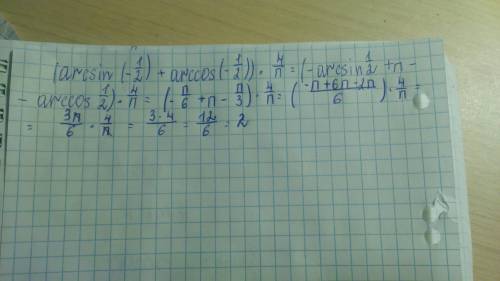 (arcsin(-1/2) + arccos(-1/2)) · 4/π = (-arcsin 1/2 + π -
- arccos 1/2) · 4/π = (-π/6 + π - π/3) · 4/π = (-π+6π-2π/6) · 4/π =
= 3π/6 · 4/π = 3·4/6 = 12/6 = 2